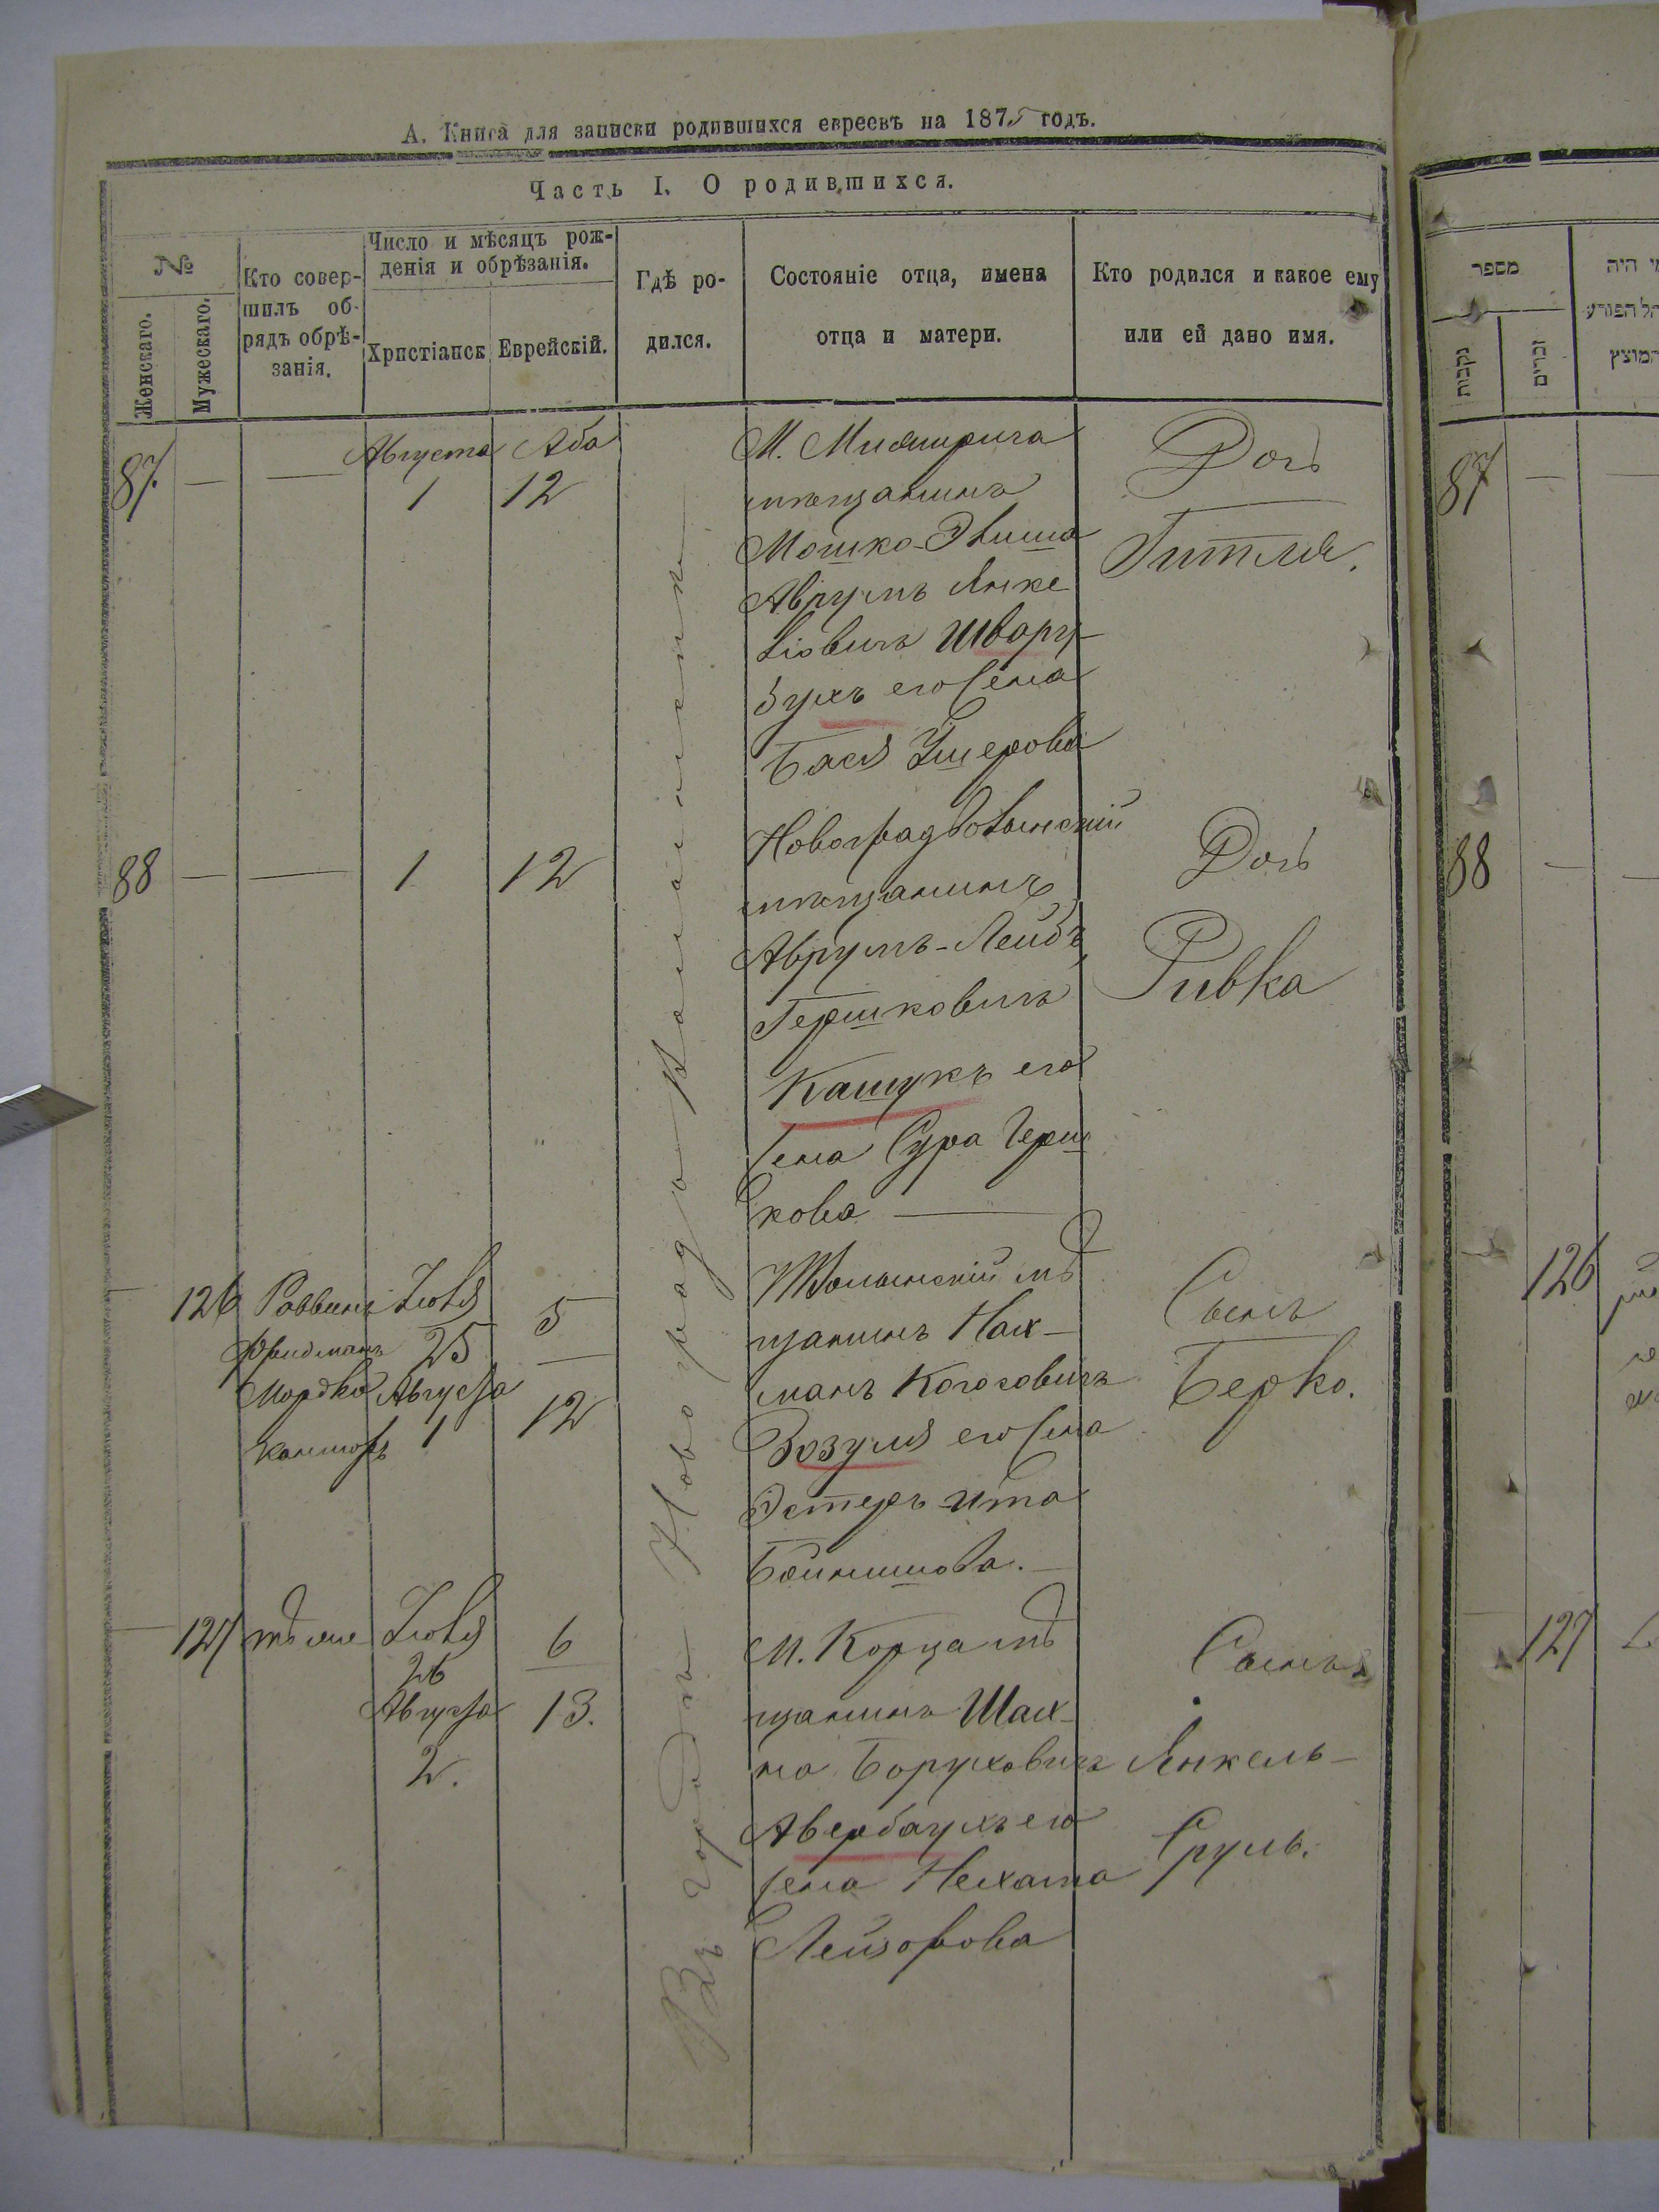 А. Книга для записки родившихся евреевъ на 1875 годъ.
Часть I. О родившихся.
№
Женскаго.
Мужескаго.
Кто совер-
шилъ об-
рядъ обрѣ-
занія.
Число и мѣсяцъ рож-
денія и обрѣзанія.
Христіанск
Еврейскій.
Гдѣ ро-
дился.
Состояніе отца, имена
отца и матери.
Кто родился и какое ему
или ей дано имя.
Въ городѣ Новоградъволынскѣ
87.
Августа
1
Аба
12
М.
мѣщанинъ
Мошко-
Аврумъ Янке
ліовичъ Шварц-
бухъ его жена
Бася Ушерова
Дочь
Гитля.
88
1
12
Новоградволынскій
мѣщанинъ
Аврумъ-Лейбъ
Гершковичъ
Кашукъ его
жена Сура Герш
кова
Дочь
Ривка
126
Раввинъ
Фридманъ
Мордко
канторъ
Іюля
25
Августа
1
5
12
мѣ
щанинъ Нах-
манъ
Зозуля его жена
Эстеръ Ита
Сынъ
Берко.
127
тѣ же
Іюля
26
Августа
2.
6
13.
М. Корца мѣ
щанинъ Шах-
на Боруховичъ
Авербаухъ его
жена Нехама
Лейзорова
Сынъ
Янкель-
Сруль.
מספר
נקבות
זכרים
מי היה
המוצץ
87
88
126
127